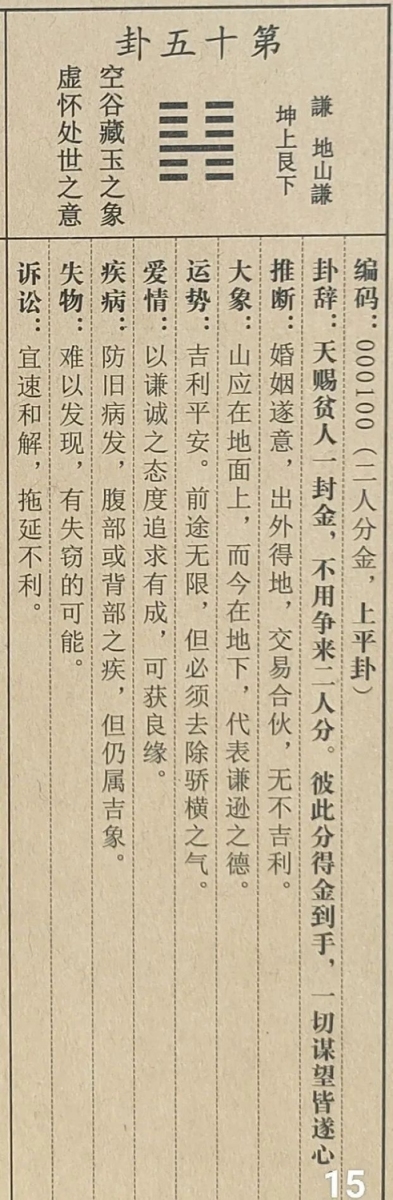 第十五卦
謙 地山謙
坤上艮下
空谷藏玉之象
虚怀处世之意
编码：000100（二人分金，上平卦）
卦辞：天赐贫人一封金，不用争来二人分。彼此分得金到手，一切谋望皆遂心
推断：婚姻遂意，出外得地，交易合伙，无不吉利。
大象：山应在地面上，而今在地下，代表谦逊之德。
运势：吉利平安。前途无限，但必须去除骄横之气。
爱情：以谦诚之态度追求有成，可获良缘。
疾病：防旧病发，腹部或背部之疾，但仍属吉象。
失物：难以发现，有失窃的可能。
诉讼：宜速和解，拖延不利。
15